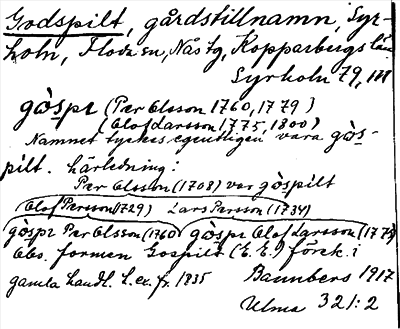 Godspilt, gårdstillnamn, Syr-
holn, Floda sn, Nås tg, Kopparbergs län
Syrholn 79, 111
gòspr (Per Olsson 1760, 1779)
(Olof Larsson 1775, 1800)
Namnet tyckes egentligen vara gòs-
pilt. Härledning:
Per Olsson (1708) var gòspilt
Olof Persson (1729) Lars Persson (1734)
gòspr Per Olsson (1760) gòspr Olof Larsson (1775)
Obs. formen Gospilt (E. E.) förek. i
gamla handl. t. ex. fr. 1835
Bannbers 1917
Ulma 321:2